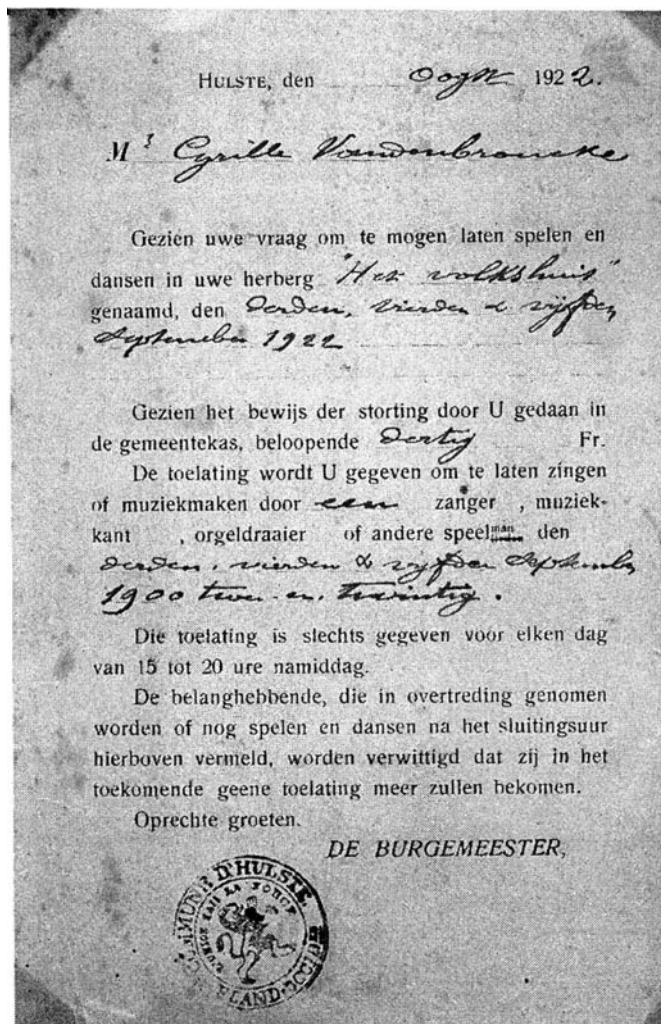 HULSTE, den Oogst 1922.
Mr Cyrille Vandenbroucke
Gezien uwe vraag om te mogen laten spelen en
dansen in uwe herberg "Het volkshuis"
genaamd, den derden, vierden & vijfden
September 1922
Gezien het bewijs der storting door U gedaan in
de gemeentekas, beloopende dertig Fr.
De toelating wordt U gegeven om te laten zingen
of muziekmaken door een zanger , muziek-
kant , orgeldraaier of andere speelman den
derden, vierden & vijfden September
1900 twee-en-twintig.
Die toelating is slechts gegeven voor elken dag
van 15 tot 20 ure namiddag.
De belanghebbende, die in overtreding genomen
worden of nog spelen en dansen na het sluitingsuur
hierboven vermeld, worden verwittigd dat zij in het
toekomende geene toelating meer zullen bekomen.
Oprechte groeten.
DE BURGEMEESTER,
COMMUNE D'HULSTE
L'UNION FAIT LA FORCE